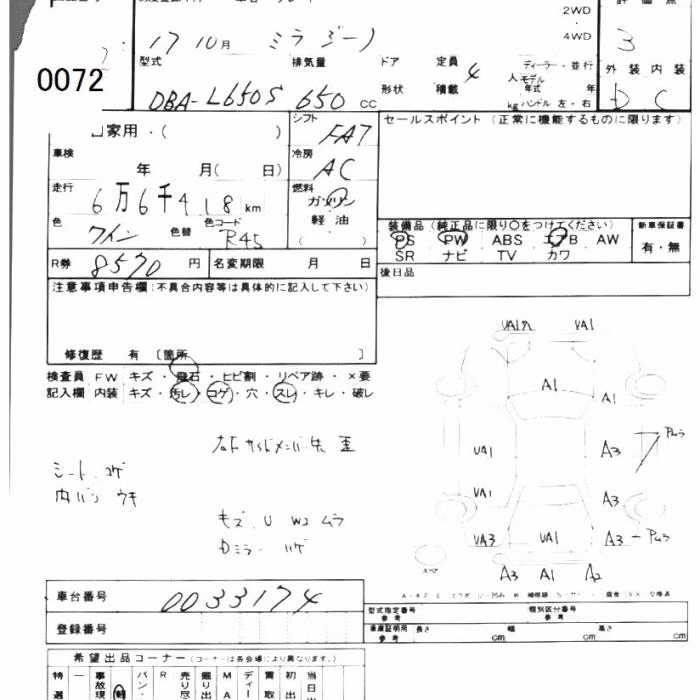 2WD
4WD
3
17 10月 ミラ ジーノ
型式 排気量 ドア 定員 4 人 ディーラー・並行
モデル
年式 年
外装 内装
0072
DBA-L650S 650 CC
形状 積載 kg ハンドル 左・右
D C
自家用・( )
シフト FAT
セールスポイント (正常に機能するものに限ります)
車検
年 月( 日)
冷房 AC
走行 6万6千418 km
燃料 ガソリン
軽油
( )
色 ワイン 色替 色コード R45
装備品 (純正品に限り○をつけてください)
新車保証書
PS PW ABS エアB AW
有・無
SR ナビ TV カワ
R券 8570 円 名変期限 月 日
後日品
注意事項申告欄 (不具合内容等は具体的に記入して下さい)
修復歴 有 〔箇所 〕
検査員 FW キズ・飛石・ヒビ割・リペア跡・×要
記入欄 内装 キズ・汚レ・コゲ・穴・スレ・キレ・破レ
UA1 A1 A1
UA1 A3 ムラ
UA1 A3
UA3 UA1 A3 ムラ
A3 A1 A2
スペア
シート コゲ
内バリ ウキ
キズ U W2 ムラ
Dミラー ハゲ
車台番号 0033174
登録番号
型式指定番号
参考
類別区分番号
車庫証明用
参考
長さ cm 幅 cm 高さ cm
希望出品コーナー (コーナーは各会場により異なります。)